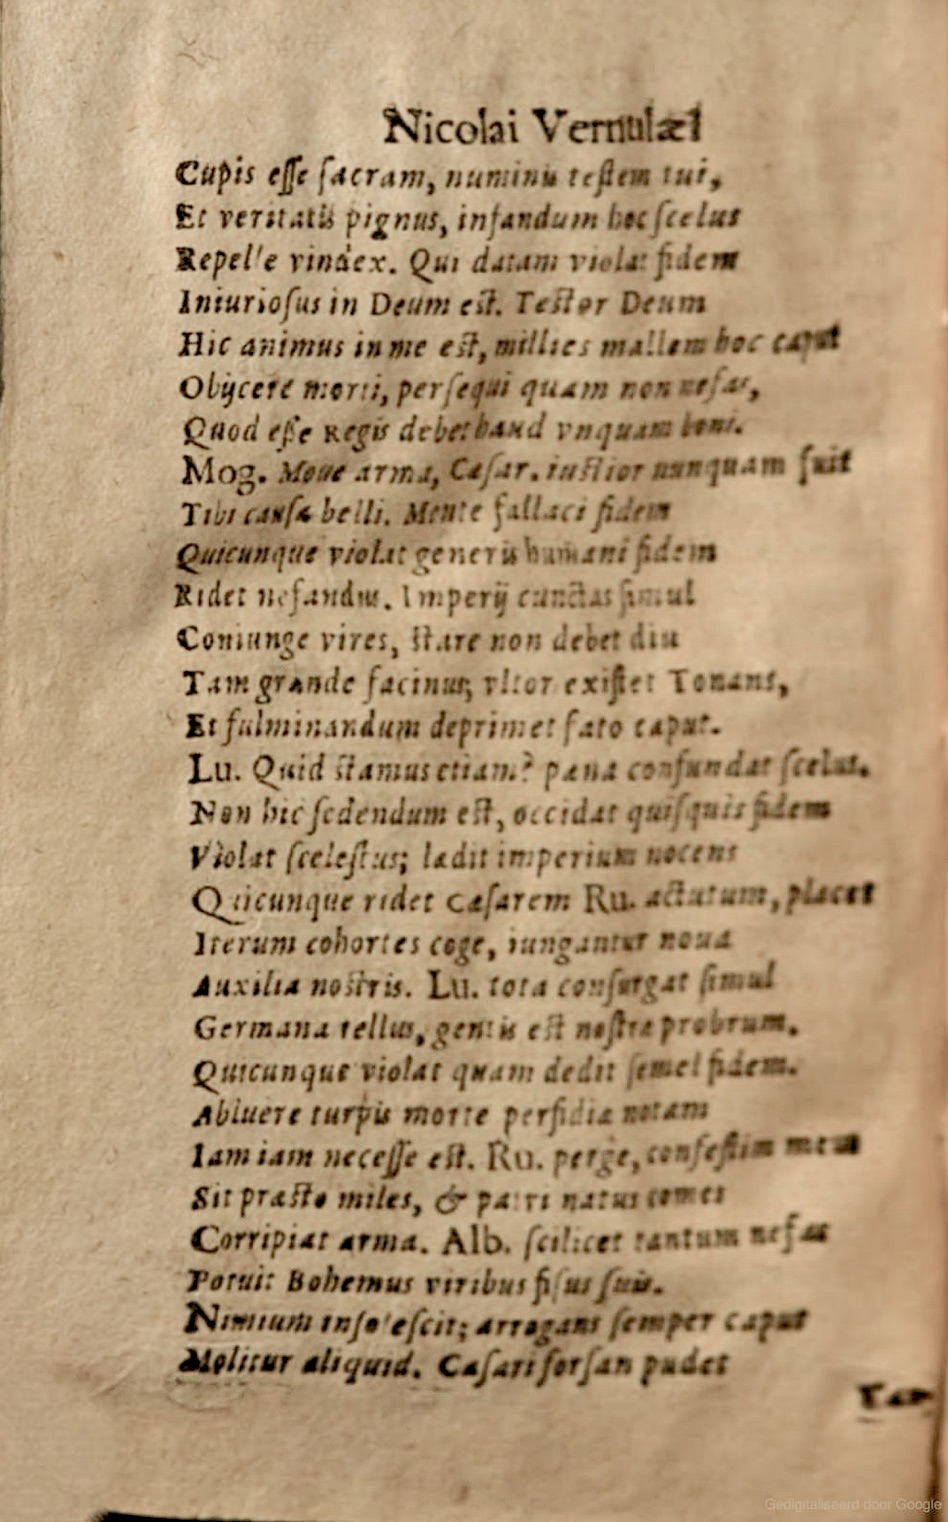 Nicolai Vernulæi
Cupis esse sacram, numinis testem tui,
Et veritatis pignus, infandum hoc scelus
Repelle vindex. Qui datam violat fidem
Iniuriosus in Deum est. Testor Deum
Hic animus in me est, millies mallem hoc caput
Obijcere morti, persequi quam non nefas,
Quod esse Regis debet haud vnquam boni.
Mog. Moue arma, Cæsar. iustior nunquam fuit
Tibi causa belli. Mente fallaci fidem
Quicunque violat generis humani fidem
Ridet nefandus. Imperij cunctas simul
Coniunge vires, stare non debet diu
Tam grande facinus, vltor existet Tonans,
Et fulminandum deprimet fato caput.
Lu. Quid stamus etiam? pæna confundat scelus.
Non hic sedendum est, occidat quisquis fidem
Violat scelestus; lædit imperium nocens
Quicunque ridet Cæsarem Ru. actutum, placet
Iterum cohortes coge, iungantur noua
Auxilia nostris. Lu. tota consurgat simul
Germana tellus, gentis est nostræ probrum.
Quicunque violat quam dedit semel fidem.
Abluere turpis morte perfidiæ notam
Iam iam necesse est. Ru. perge, confestim meus
Sit præsto miles, & patri natus comes
Corripiat arma. Alb. scilicet tantum nefas
Potuit Bohemus viribus fisus suis.
Nimium insolescit; arrogans semper caput
Molitur aliquid. Cæsari forsan pudet
Tam